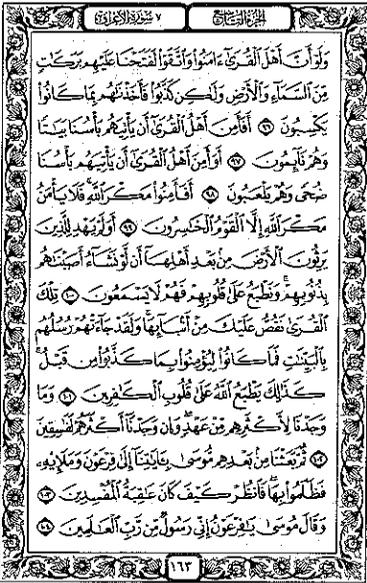 الجزء التاسع
٧ سورة الأعراف
وَلَوۡ أَنَّ أَهۡلَ ٱلۡقُرَىٰٓ ءَامَنُواْ وَٱتَّقَوۡاْ لَفَتَحۡنَا عَلَيۡهِم بَرَكَٰتٖ
مِّنَ ٱلسَّمَآءِ وَٱلۡأَرۡضِ وَلَٰكِن كَذَّبُواْ فَأَخَذۡنَٰهُم بِمَا كَانُواْ
يَكۡسِبُونَ ٩٦ أَفَأَمِنَ أَهۡلُ ٱلۡقُرَىٰٓ أَن يَأۡتِيَهُم بَأۡسُنَا بَيَٰتٗا
وَهُمۡ نَآئِمُونَ ٩٧ أَوَأَمِنَ أَهۡلُ ٱلۡقُرَىٰٓ أَن يَأۡتِيَهُم بَأۡسُنَا
ضُحٗى وَهُمۡ يَلۡعَبُونَ ٩٨ أَفَأَمِنُواْ مَكۡرَ ٱللَّهِۚ فَلَا يَأۡمَنُ
مَكۡرَ ٱللَّهِ إِلَّا ٱلۡقَوۡمُ ٱلۡخَٰسِرُونَ ٩٩ أَوَلَمۡ يَهۡدِ لِلَّذِينَ
يَرِثُونَ ٱلۡأَرۡضَ مِنۢ بَعۡدِ أَهۡلِهَآ أَن لَّوۡ نَشَآءُ أَصَبۡنَٰهُم
بِذُنُوبِهِمۡۚ وَنَطۡبَعُ عَلَىٰ قُلُوبِهِمۡ فَهُمۡ لَا يَسۡمَعُونَ ١٠٠ تِلۡكَ
ٱلۡقُرَىٰ نَقُصُّ عَلَيۡكَ مِنۡ أَنۢبَآئِهَاۚ وَلَقَدۡ جَآءَتۡهُمۡ رُسُلُهُم
بِٱلۡبَيِّنَٰتِ فَمَا كَانُواْ لِيُؤۡمِنُواْ بِمَا كَذَّبُواْ مِن قَبۡلُۚ
كَذَٰلِكَ يَطۡبَعُ ٱللَّهُ عَلَىٰ قُلُوبِ ٱلۡكَٰفِرِينَ ١٠١ وَمَا
وَجَدۡنَا لِأَكۡثَرِهِم مِّنۡ عَهۡدٖۖ وَإِن وَجَدۡنَآ أَكۡثَرَهُمۡ لَفَٰسِقِينَ
١٠٢ ثُمَّ بَعَثۡنَا مِنۢ بَعۡدِهِم مُّوسَىٰ بِـَٔايَٰتِنَآ إِلَىٰ فِرۡعَوۡنَ وَمَلَإِيْهِۦ
فَظَلَمُواْ بِهَاۖ فَٱنظُرۡ كَيۡفَ كَانَ عَٰقِبَةُ ٱلۡمُفۡسِدِينَ ١٠٣
وَقَالَ مُوسَىٰ يَٰفِرۡعَوۡنُ إِنِّي رَسُولٞ مِّن رَّبِّ ٱلۡعَٰلَمِينَ ١٠٤
١٦٣